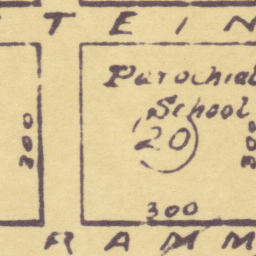 TEIN
Parochial
School
20
300
300
300
RAMM